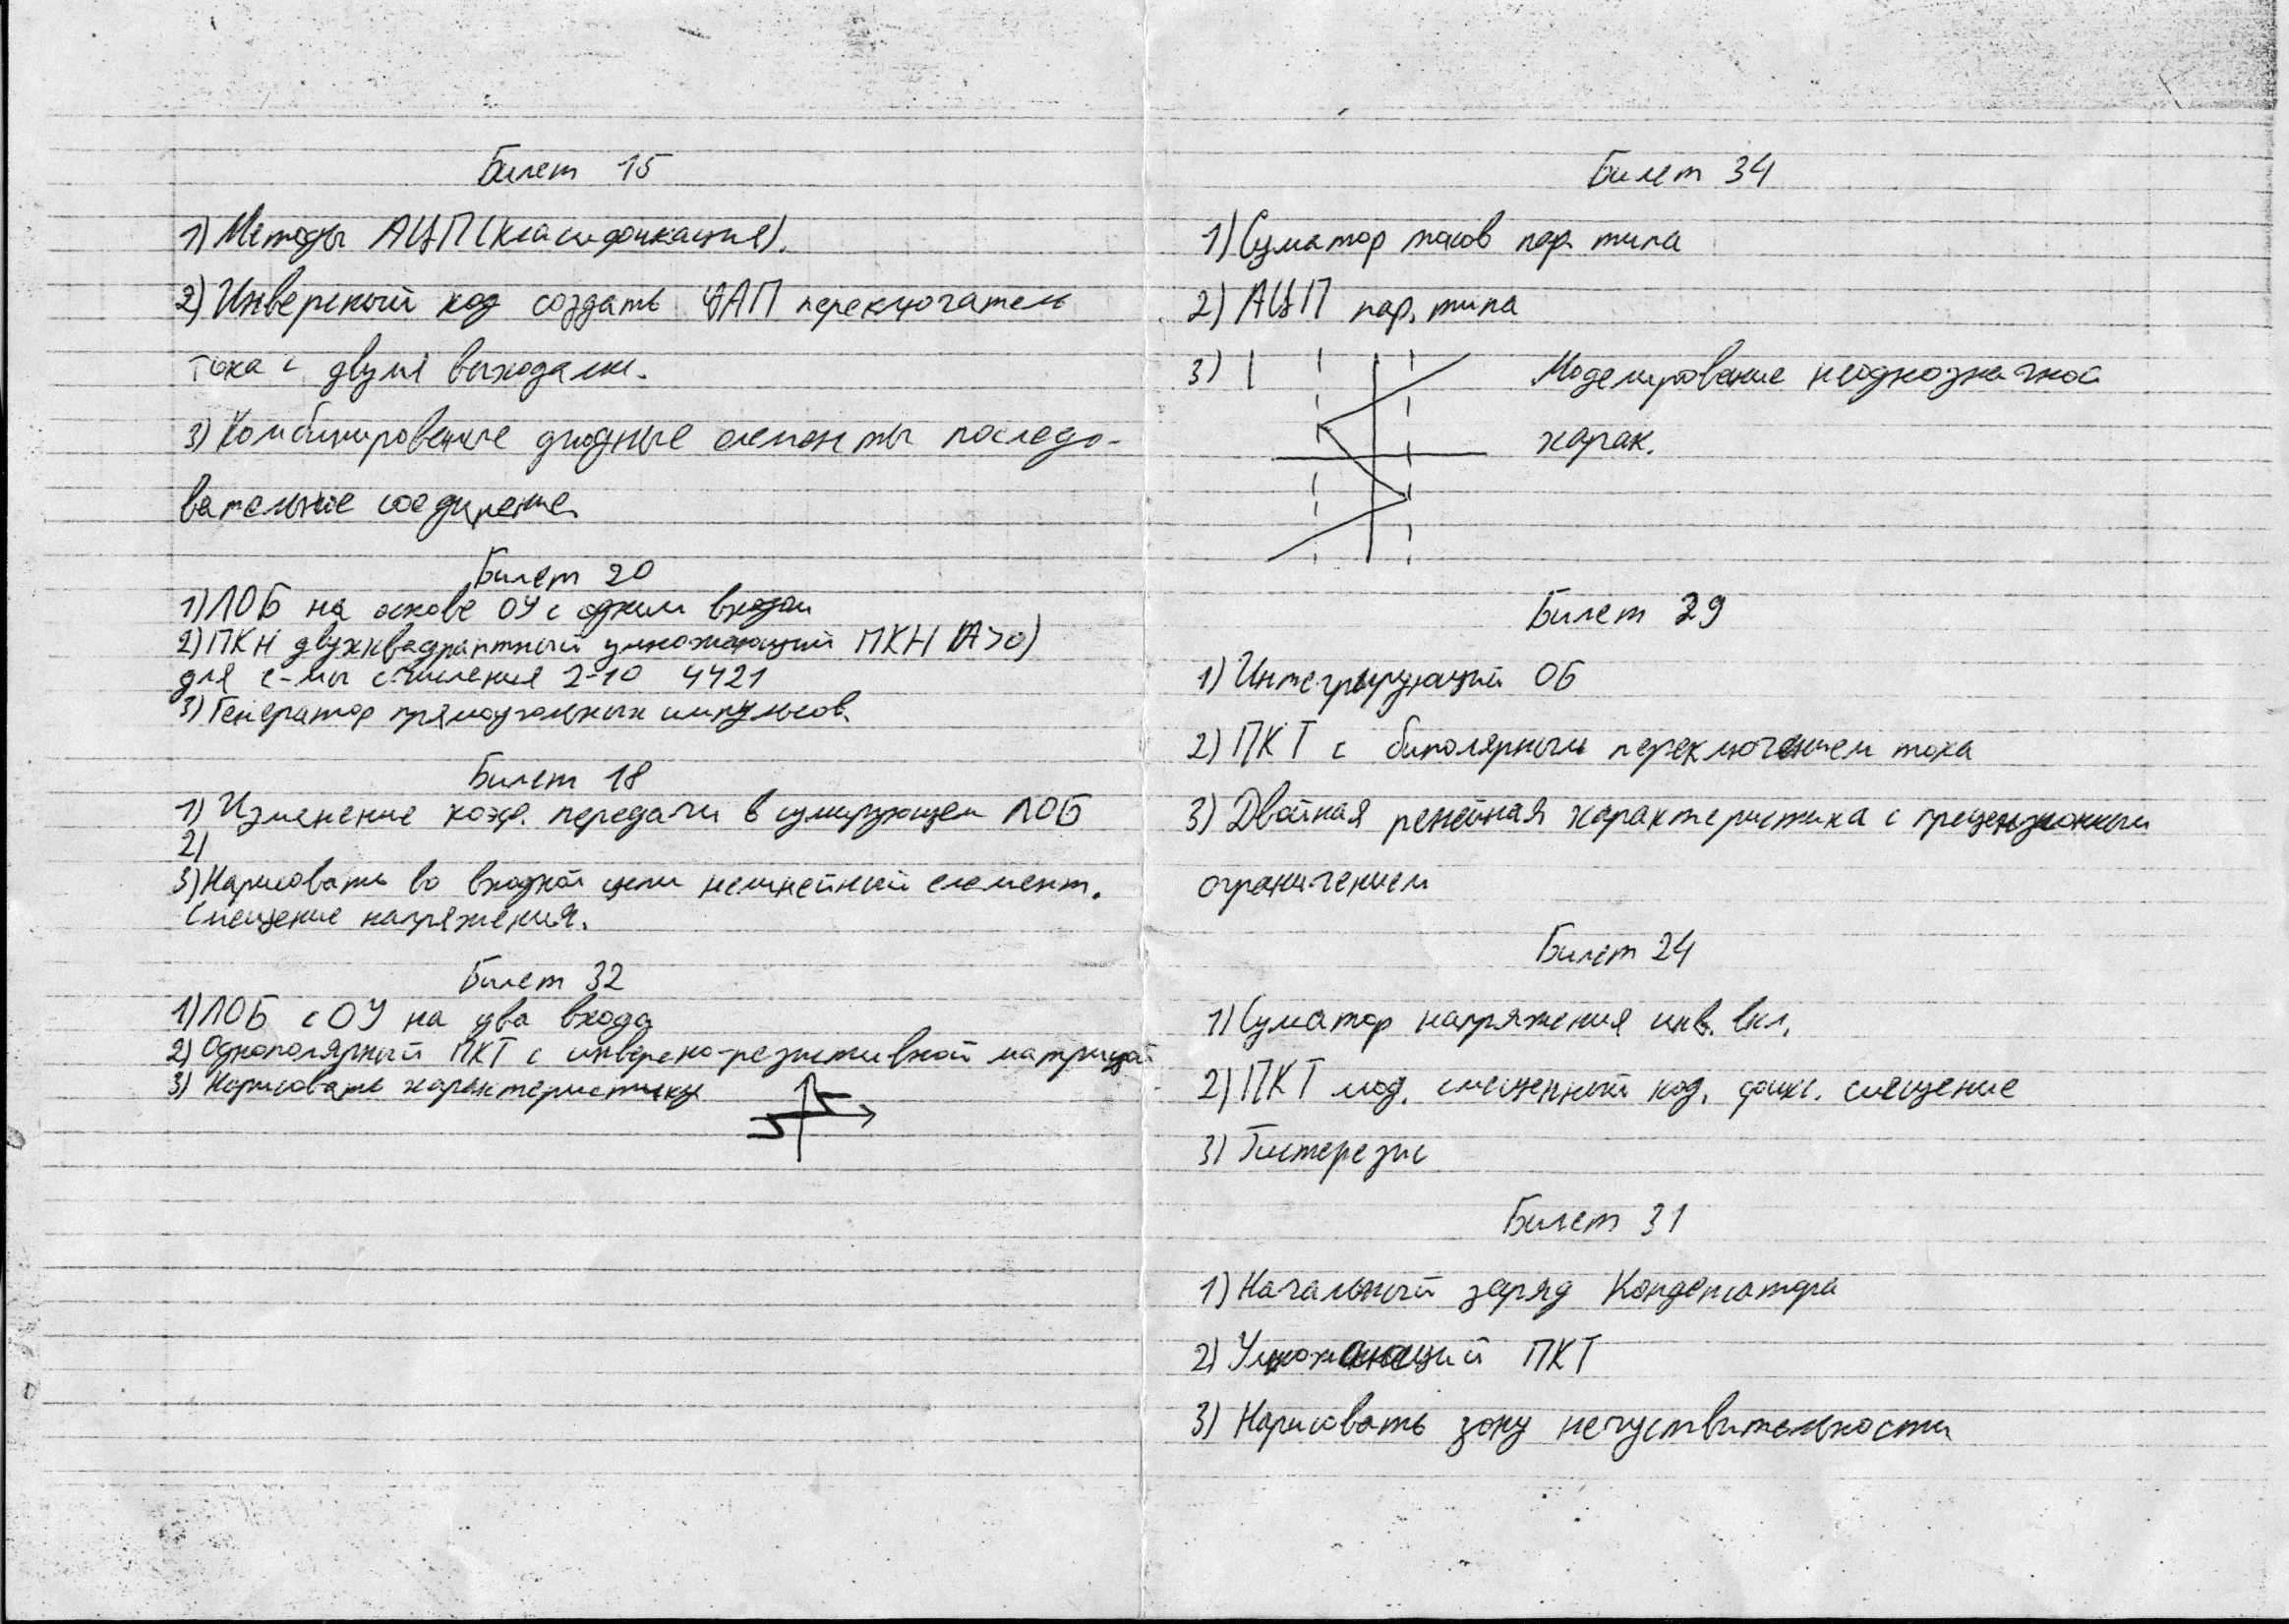 Билет 15
1) Методы АЦП (класификация).
2) Инверсный код создать ЦАП переключатель
тока с двумя выходами.
3) Комбинирование диодные елементы последо-
вательное соединение.
Билет 20
1) ЛОБ на основе ОУ с одним входом
2) ПКН двухквадрантный умножающий ПКН (А>0)
для с-мы счисления 2-10 4421
3) Генератор прямоугольных импульсов.
Билет 18
1) Изменение коэф. передачи в сумирующем ЛОБ
2)
3) Нарисовать во входной цепи нелинейный елемент.
Смещение напряжения.
Билет 32
1) ЛОБ с ОУ на два входа
2) Однополярный ПКТ с инверсно-резистивной матрицой
3) Нарисовать характеристику
Билет 34
1) Суматор токов пар. типа
2) АЦП пар. типа
3)
Моделирование неоднозначной
харак.
Билет 29
1) Интегрырующий ОБ
2) ПКТ с биполярным переключением тока
3) Двойная релейная характеристика с прецензионным
ограничением
Билет 24
1) Суматор напряжения инв. вкл.
2) ПКТ мод. смещенный код. фикс. смещение
3) Гистерезис
Билет 31
1) Начальный заряд Конденсатора
2) Умножающий ПКТ
3) Нарисовать зону нечуствительности